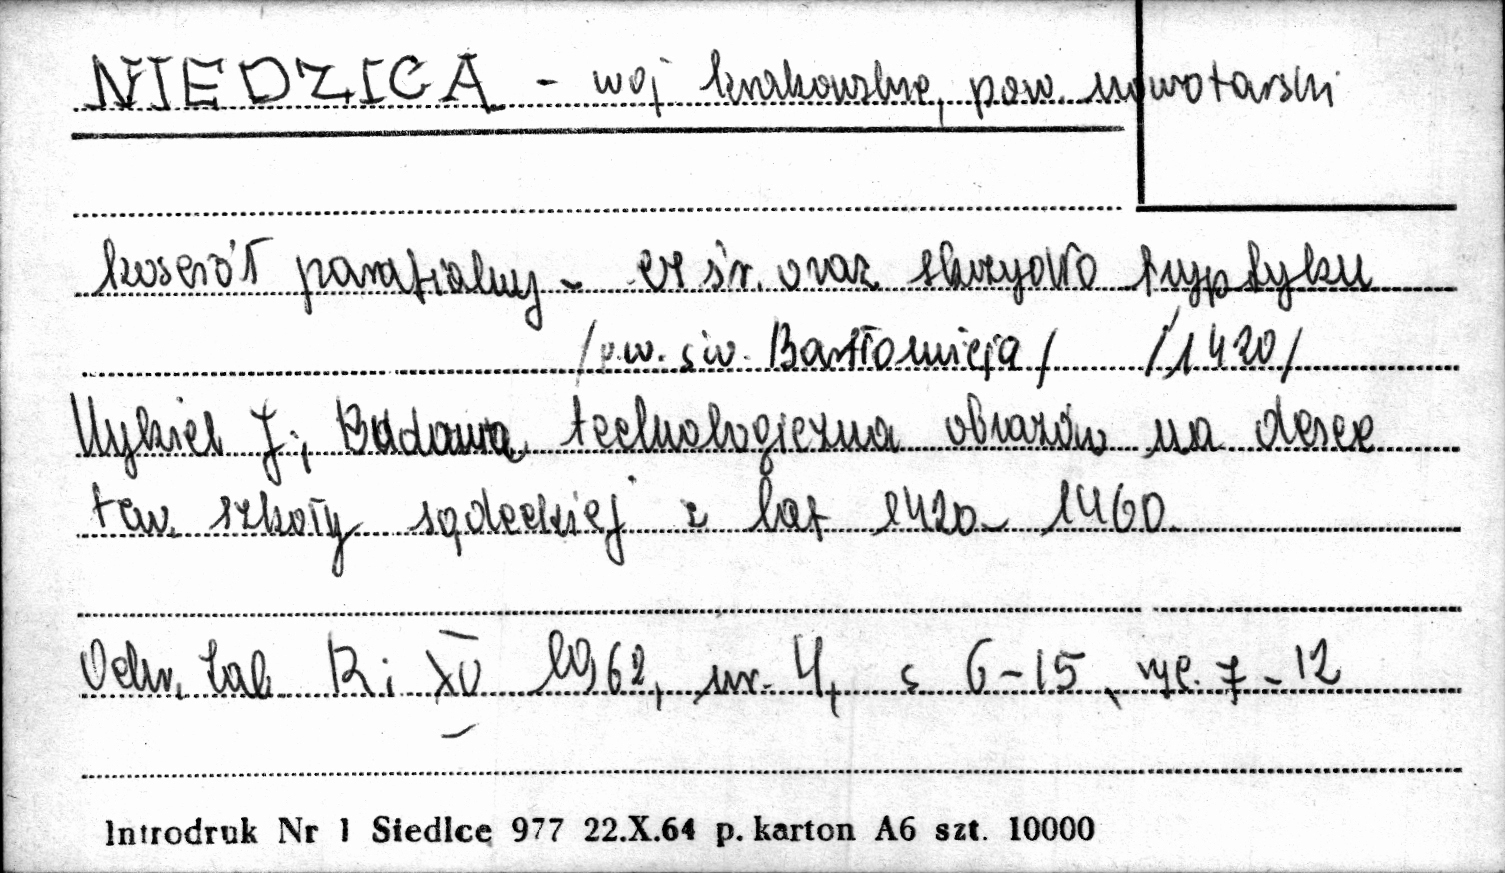 NIEDZICA - woj krakowskie, pow. nowotarski
kościół parafialny - cz śr. oraz skrzydło tryptyku
/p.w. św. Bartłomieja/ /1420/
Nykiel J; Budowa technologiczna obrazów na desce
tzw. szkoły sądeckiej z lat 1420-1460.
Ochr. Zab R; XV 1962, nr. 4, s 6-15, ryc. 7-12
Introdruk Nr 1 Siedlce 977 22.X.64 p. karton A6 szt. 10000